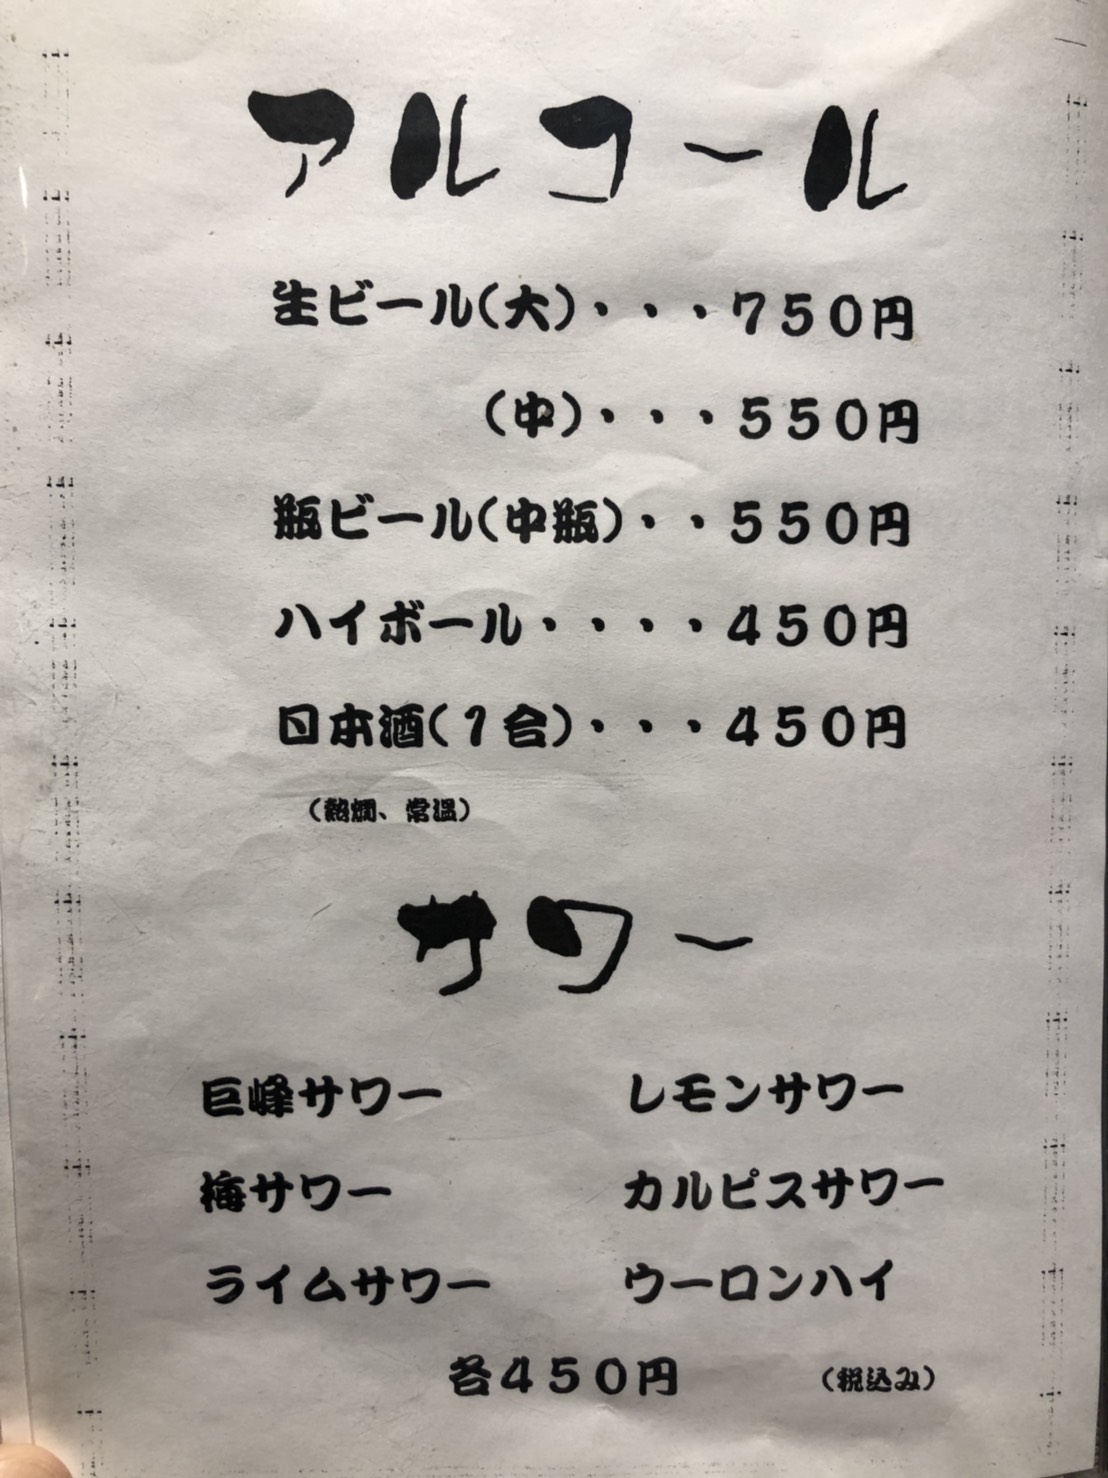 アルコール
生ビール(大)・・・750円
(中)・・・550円
瓶ビール(中瓶)・・550円
ハイボール・・・・450円
日本酒(1合)・・・450円
(熱燗、常温)
サワー
巨峰サワー レモンサワー
梅サワー カルピスサワー
ライムサワー ウーロンハイ
各450円 (税込み)